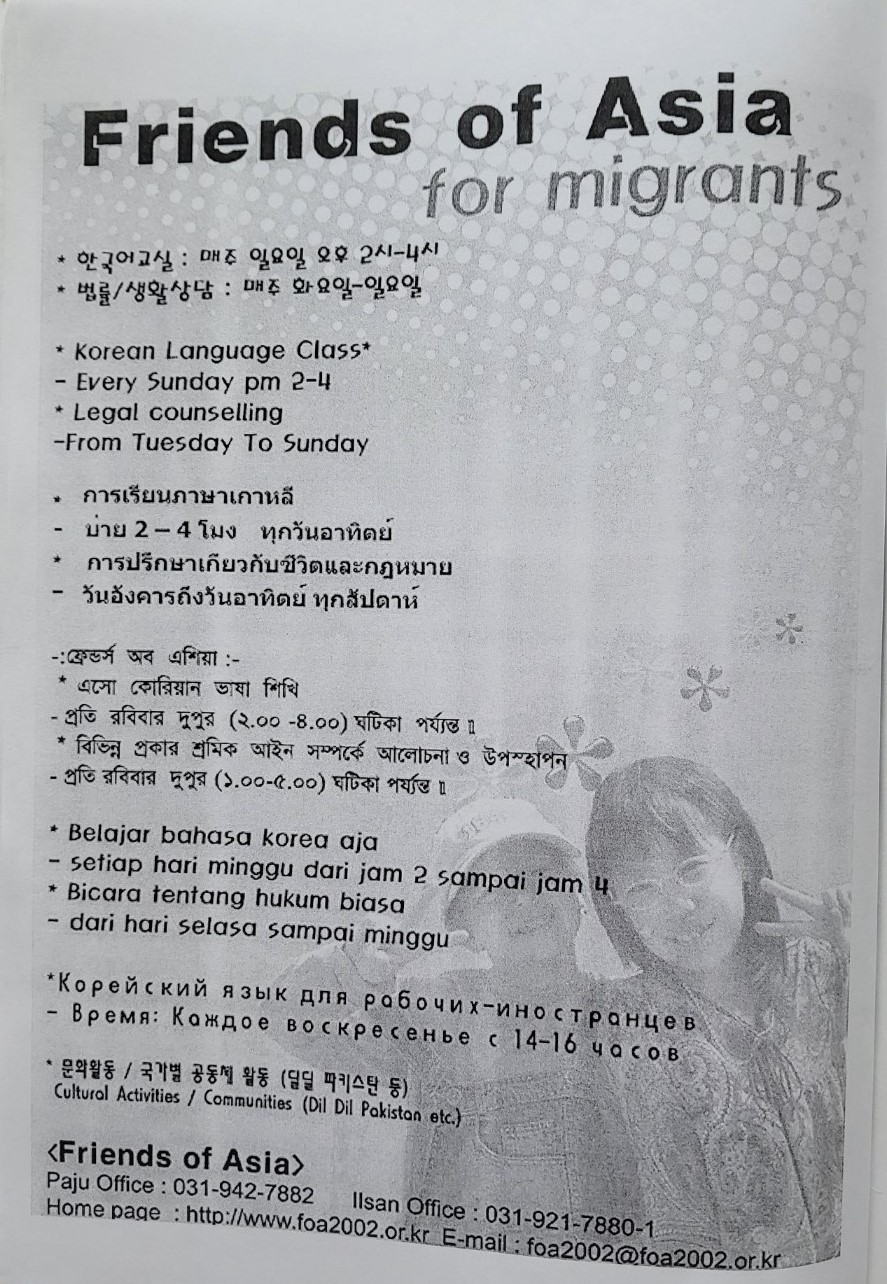 Friends of Asia
for migrants
* 한국어교실 : 매주 일요일 오후 2시-4시
* 법률/생활상담 : 매주 화요일-일요일
* Korean Language Class*
- Every Sunday pm 2-4
* Legal counselling
-From Tuesday To Sunday
* การเรียนภาษาเกาหลี
- บ่าย 2 – 4 โมง ทุกวันอาทิตย์
* การปรึกษาเกียวกับชีวิตและกฎหมาย
- วันอังคารถึงวันอาทิตย์ ทุกสัปดาห์
-:ফ্রেন্ডর্স অব এশিয়া :-
* এসো কোরিয়ান ভাষা শিখি
- প্রতি রবিবার দুপুর (২.০০ -৪.০০) ঘটিকা পর্য্যন্ত ॥
* বিভিন্ন প্রকার শ্রমিক আইন সম্পর্কে আলোচনা ও উপস্হাপন
- প্রতি রবিবার দুপুর (১.০০-৫.০০) ঘটিকা পর্য্যন্ত ॥
* Belajar bahasa korea aja
- setiap hari minggu dari jam 2 sampai jam 4
* Bicara tentang hukum biasa
- dari hari selasa sampai minggu
*Корейский язык для рабочих-иностранцев
- Время: Каждое воскресенье с 14-16 часов
* 문화활동 / 국가별 공동체 활동 (딜딜 파키스탄 등)
Cultural Activities / Communities (Dil Dil Pakistan etc.)
<Friends of Asia>
Paju Office : 031-942-7882 Ilsan Office : 031-921-7880-1
Home page : http://www.foa2002.or.kr E-mail : foa2002@foa2002.or.kr